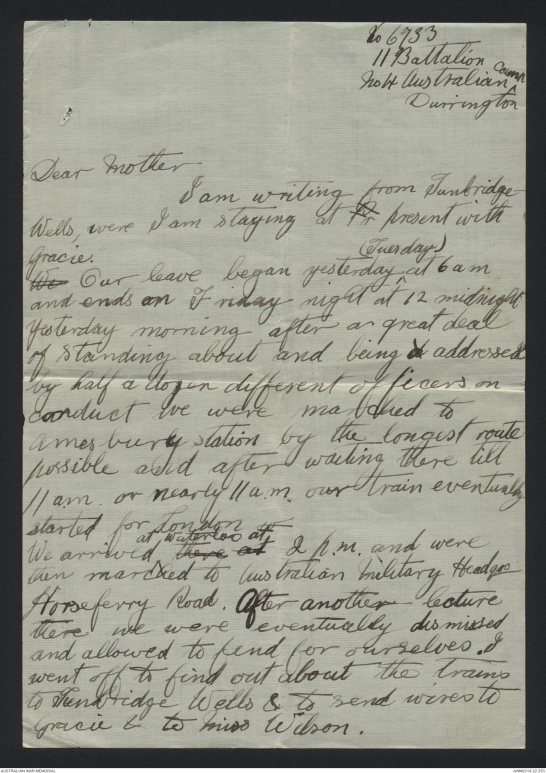 No 6733
11 Battalion
No 4 Australian Camp
Durrington
Dear Mother
I am writing from Tunbridge
Wells, were I am staying at Pr present with
Gracie.
We Our leave began yesterday (Tuesday) at 6 am
and ends on Friday night at 12 midnight
Yesterday morning after a great deal
of standing about and being addressed
by half a dozen different officers on
conduct we were marched to
Amesbury station by the longest route
possible and after waiting there till
11 a.m. or nearly 11 a.m. our train eventually
started for London
We arrived there at at Waterloo at 2 p.m. and were
then marched to Australian Military Headqrs
Horseferry Road. After another lecture
there we were eventually dismissed
and allowed to fend for ourselves. I
went off to find out about the trains
to Tunbridge Wells & to send wires to
Gracie & to Miss Wilson.
AUSTRALIAN WAR MEMORIAL